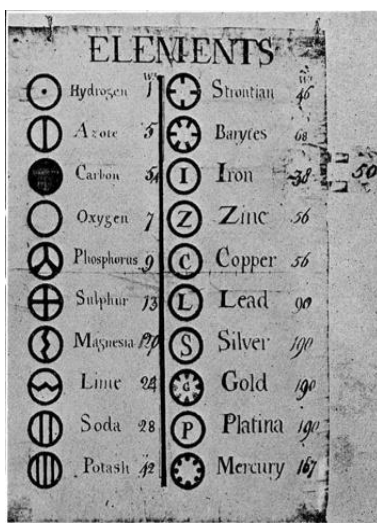 ELEMENTS
Wt
Hydrogen 1
Azote 5
Carbon 54
Oxygen 7
Phosphorus 9
Sulphur 13
Magnesia 20
Lime 24
Soda 28
Potash 42
Wt
Strontian 46
Barytes 68
I Iron 38 50
Z Zinc 56
C Copper 56
L Lead 90
S Silver 190
G Gold 190
P Platina 190
Mercury 167